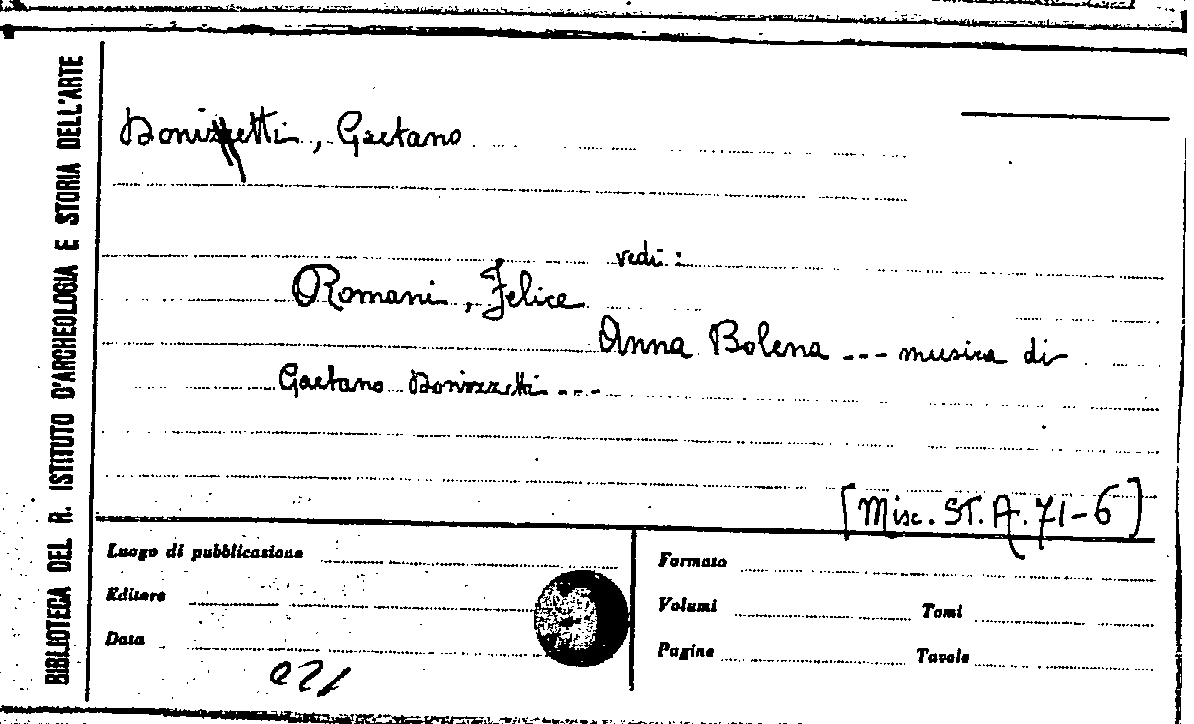 BIBLIOTECA DEL R. ISTITUTO D'ARCHEOLOGIA E STORIA DELL'ARTE
Donizzetti, Gaetano
vedi:
Romani, Felice
Anna Bolena --- musica di
Gaetano Donizzetti ---
[Misc. ST. A. 71-6]
Luogo di pubblicazione
Editore
Data
Formato
Volumi Tomi
Pagine Tavole